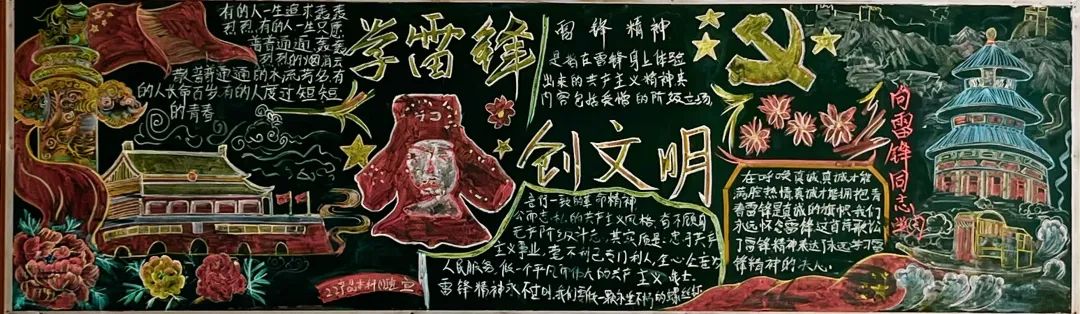 有的人一生追求轰轰
烈烈,有的人一生只愿
普普通通,轰轰
烈烈的烟消云
散,普普通通的水流若名,有
的人长命百岁,有的人度过短短
的青春
学雷锋
创文明
雷锋精神
是指在雷锋身上体验
出来的共产主义精神,其
内容包括爱憎的阶级立场,
言行一致的革命精神
公而忘私的共产主义风格,奋不顾身
无产阶级斗志,其实质是,忠于共产
主义事业,毫不利己专门利人,全心全意为
人民服务,做一个平凡而伟大的共产主义战士
雷锋精神永不过时,我们要做一颗永生不朽的螺丝钉
在呼唤真诚,真诚才能
满腔热情,真诚才能拥抱青
春,雷锋是真诚的旗帜,我们
永远怀念雷锋,这首诗歌讼
了雷锋精神,表达了永远学习雷
锋精神的决心。
向雷锋同志学习